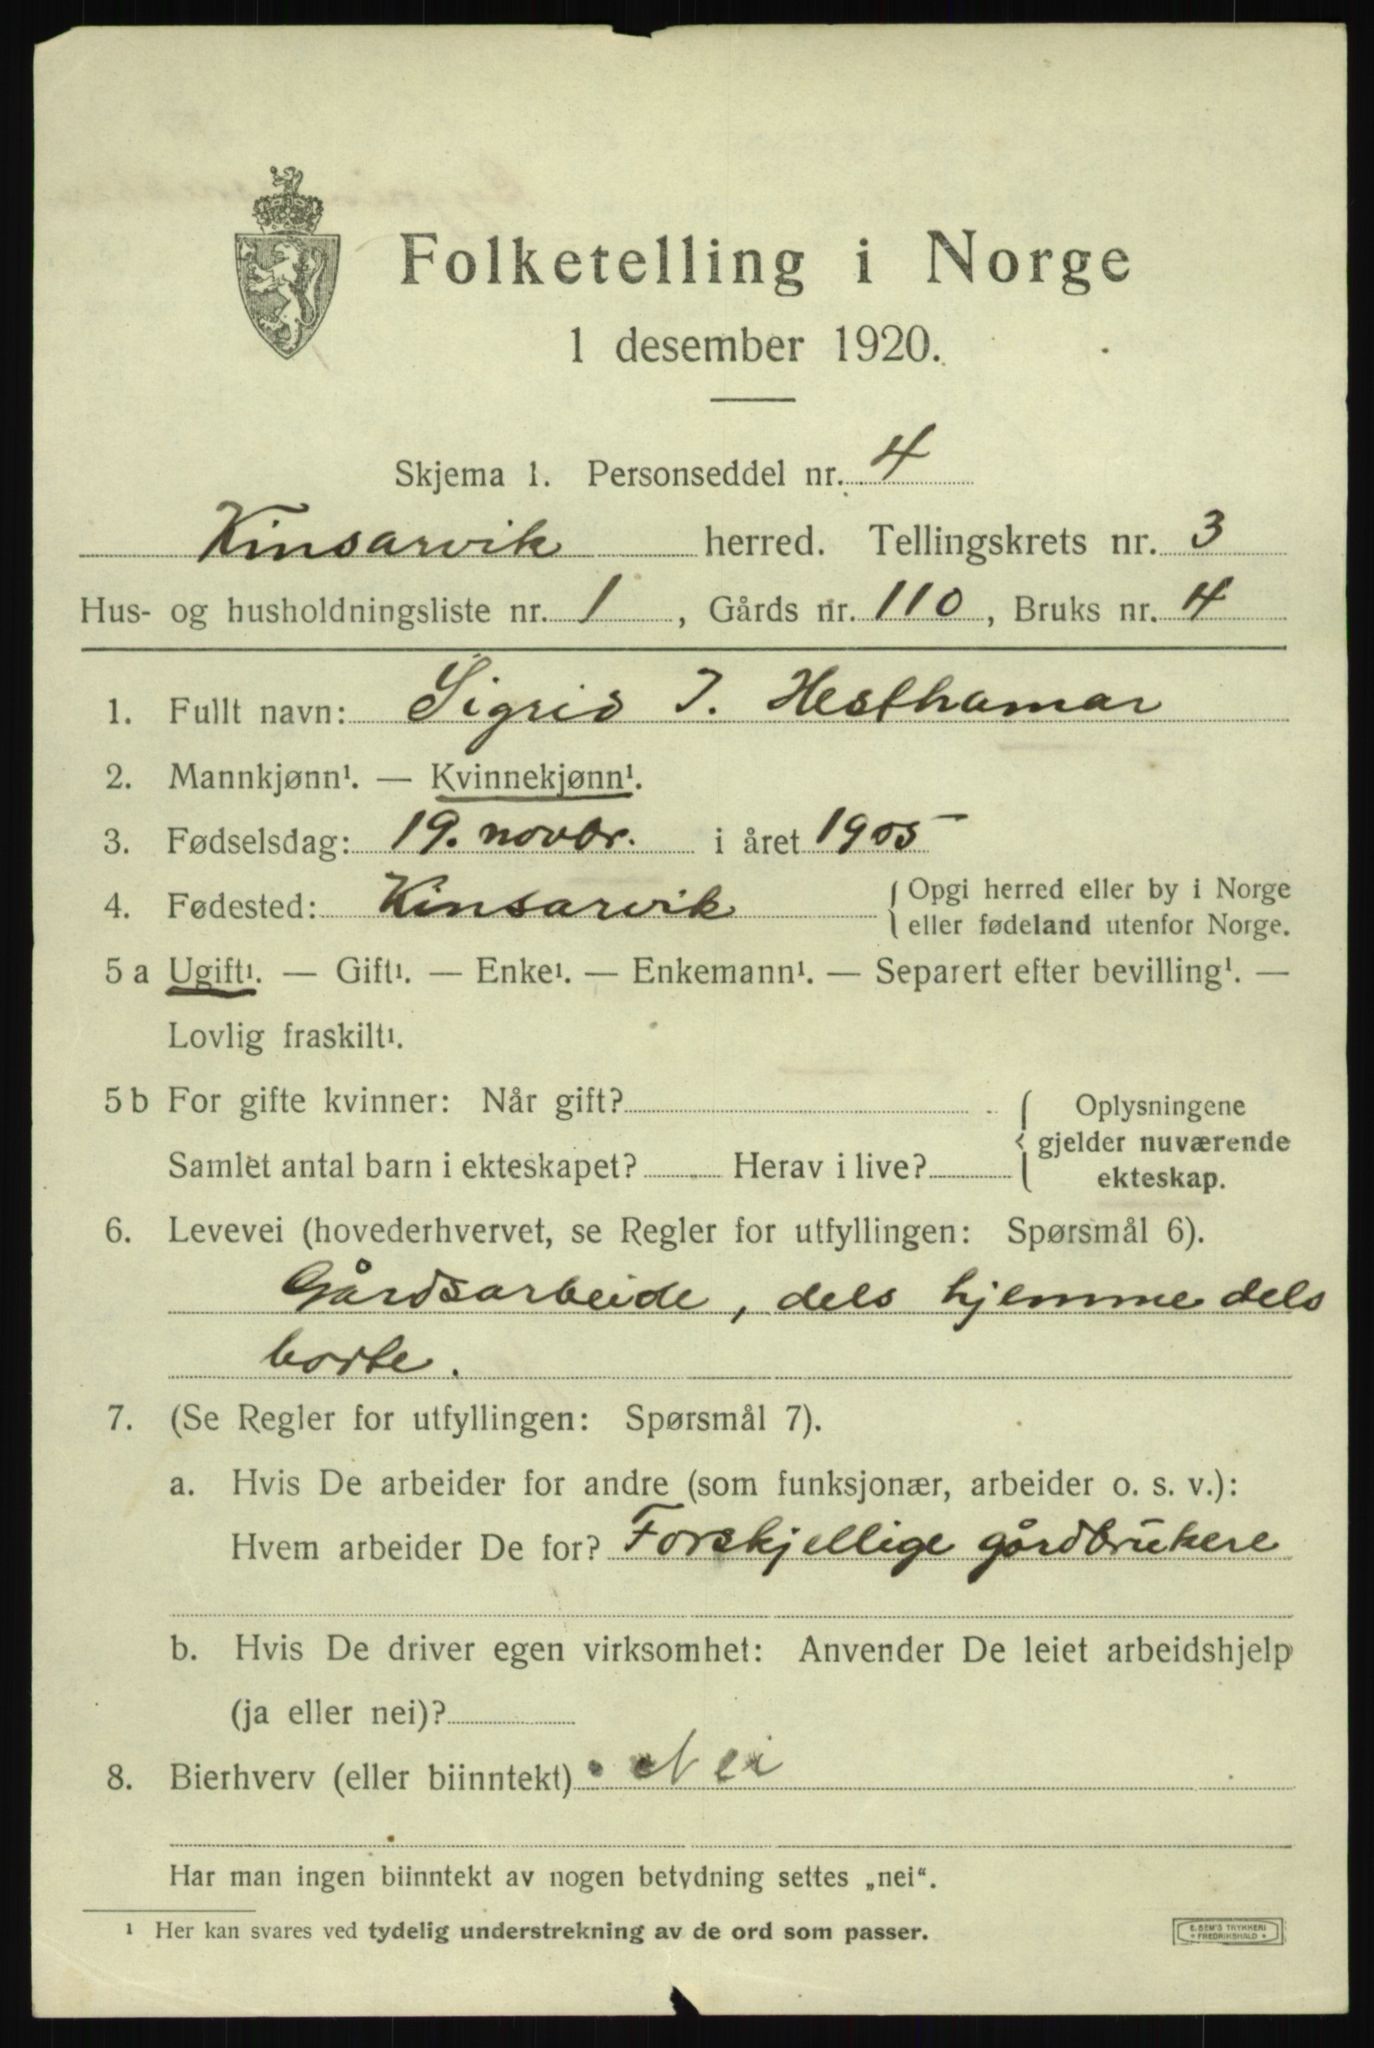 Folketelling i Norge
1 desember 1920.
Skjema 1. Personseddel nr. 4
Kinsarvik herred. Tellingskrets nr. 3
Hus- og husholdningsliste nr. 1, Gårds nr. 110, Bruks nr. 4
1. Fullt navn: Sigrid I. Hesthamar
2. Mannkjønn¹. — Kvinnekjønn¹.
3. Fødselsdag: 19. novbr. i året 1905
4. Fødested: Kinsarvik { Opgi herred eller by i Norge
eller fødeland utenfor Norge.
5 a Ugift¹. — Gift¹. — Enke¹. — Enkemann¹. — Separert efter bevilling¹. —
Lovlig fraskilt¹.
5 b For gifte kvinner: Når gift?
Samlet antal barn i ekteskapet? Herav i live?
{ Oplysningene
gjelder nuværende
ekteskap.
6. Levevei (hovederhvervet, se Regler for utfyllingen: Spørsmål 6).
Gårdsarbeide, dels hjemme dels
borte.
7. (Se Regler for utfyllingen: Spørsmål 7).
a. Hvis De arbeider for andre (som funksjonær, arbeider o. s. v.):
Hvem arbeider De for? Forskjellige gårdbrukere
b. Hvis De driver egen virksomhet: Anvender De leiet arbeidshjelp
(ja eller nei)?
8. Bierhverv (eller biinntekt) Nei
Har man ingen biinntekt av nogen betydning settes „nei“.
¹ Her kan svares ved tydelig understrekning av de ord som passer.
E. SEM'S TRYKKERI
• FREDRIKSHALD •